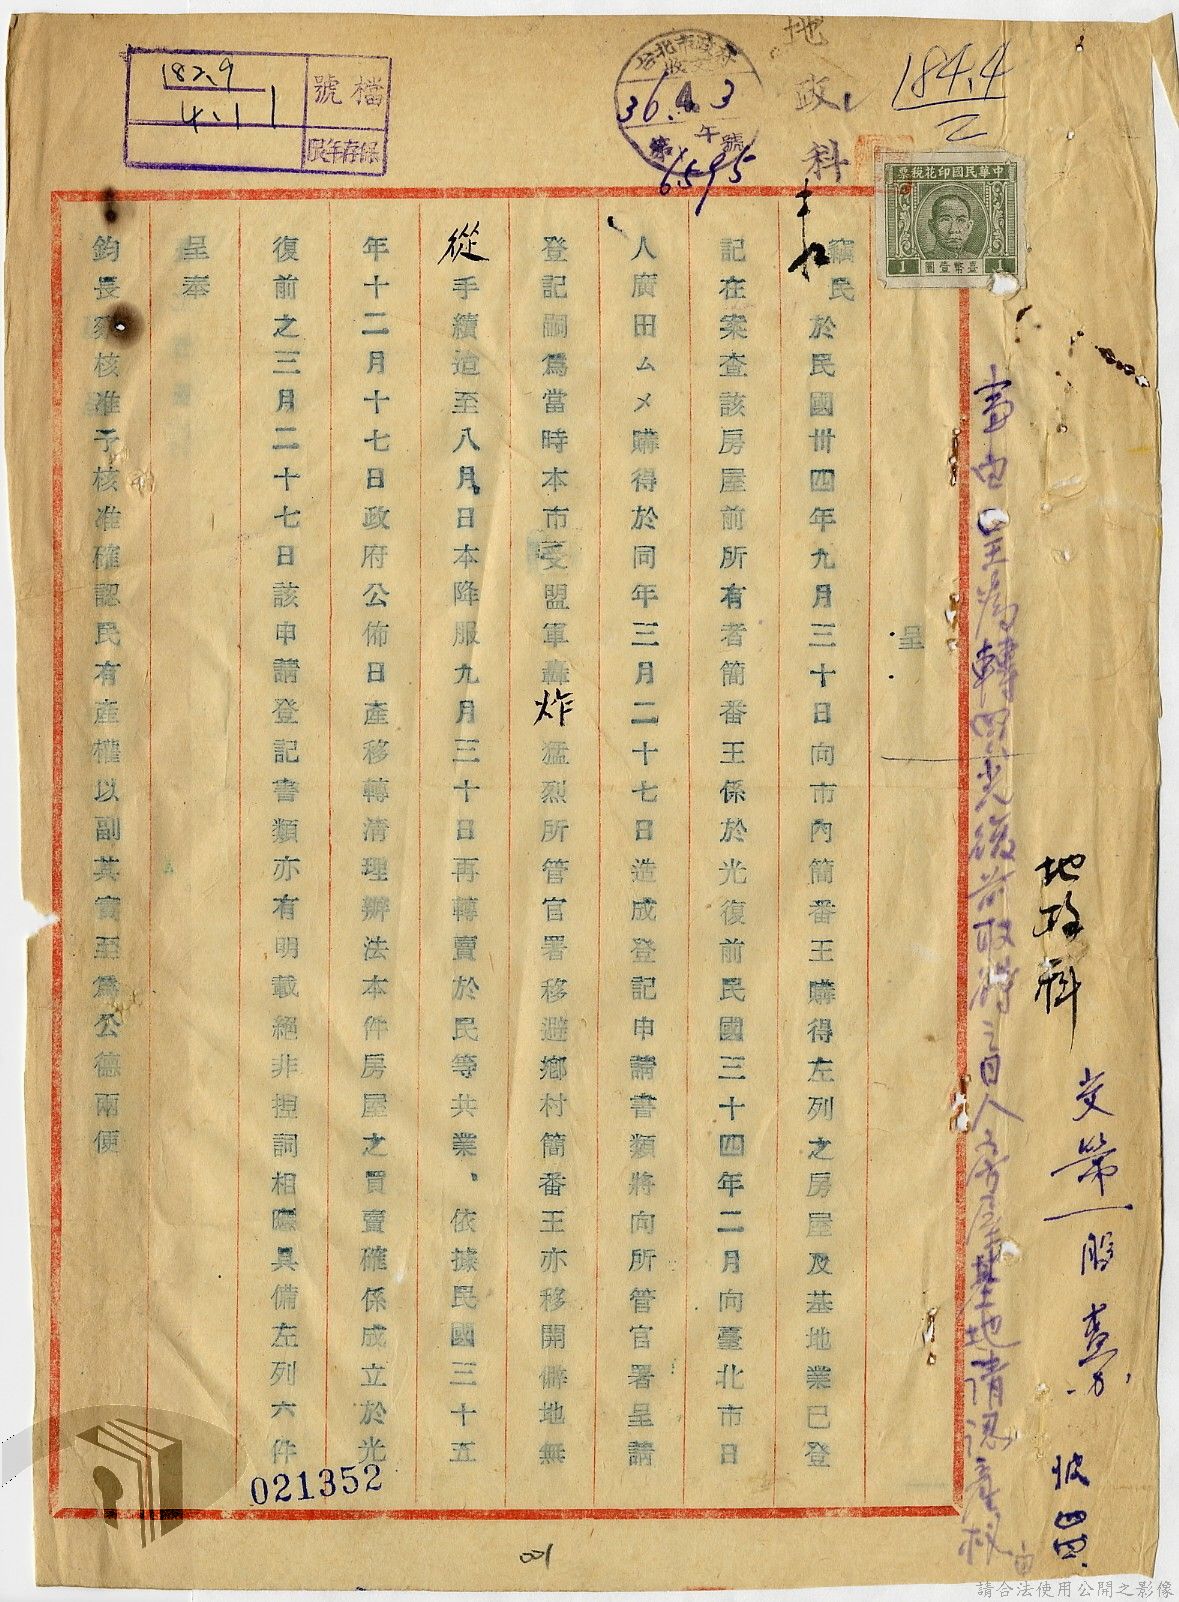 檔號
182.9
4.11
保存年限
台北市政府
收文
36.4.3
午
第 號
6595
地政科
184.4
2
中華民國印花稅票
1 臺幣壹圓 1
地政科
交第一股
事由 呈為轉買光復前取得之日人房屋基地請認產權由
呈
竊民於民國卅四年九月三十日向市內簡番王購得左列之房屋及基地業已登
記在案查該房屋前所有者簡番王係於光復前民國三十四年二月向臺北市日
人廣田ムメ購得於同年三月二十七日造成登記申請書類將向所管官署呈請
登記嗣為當時本市受盟軍轟炸猛烈所管官署移避鄉村簡番王亦移開僻地無
從手續迨至八月日本降服九月三十日再轉賣於民等共業、依據民國三十五
年十二月十七日政府公佈日產移轉清理辦法本件房屋之買賣確係成立於光
復前之三月二十七日該申請登記書類亦有明載絕非捏詞相瞞具備左列六件
呈奉
鈞長察核准予核准確認民有產權以副其實至為公德兩便
021352
001
請合法使用公開之影像